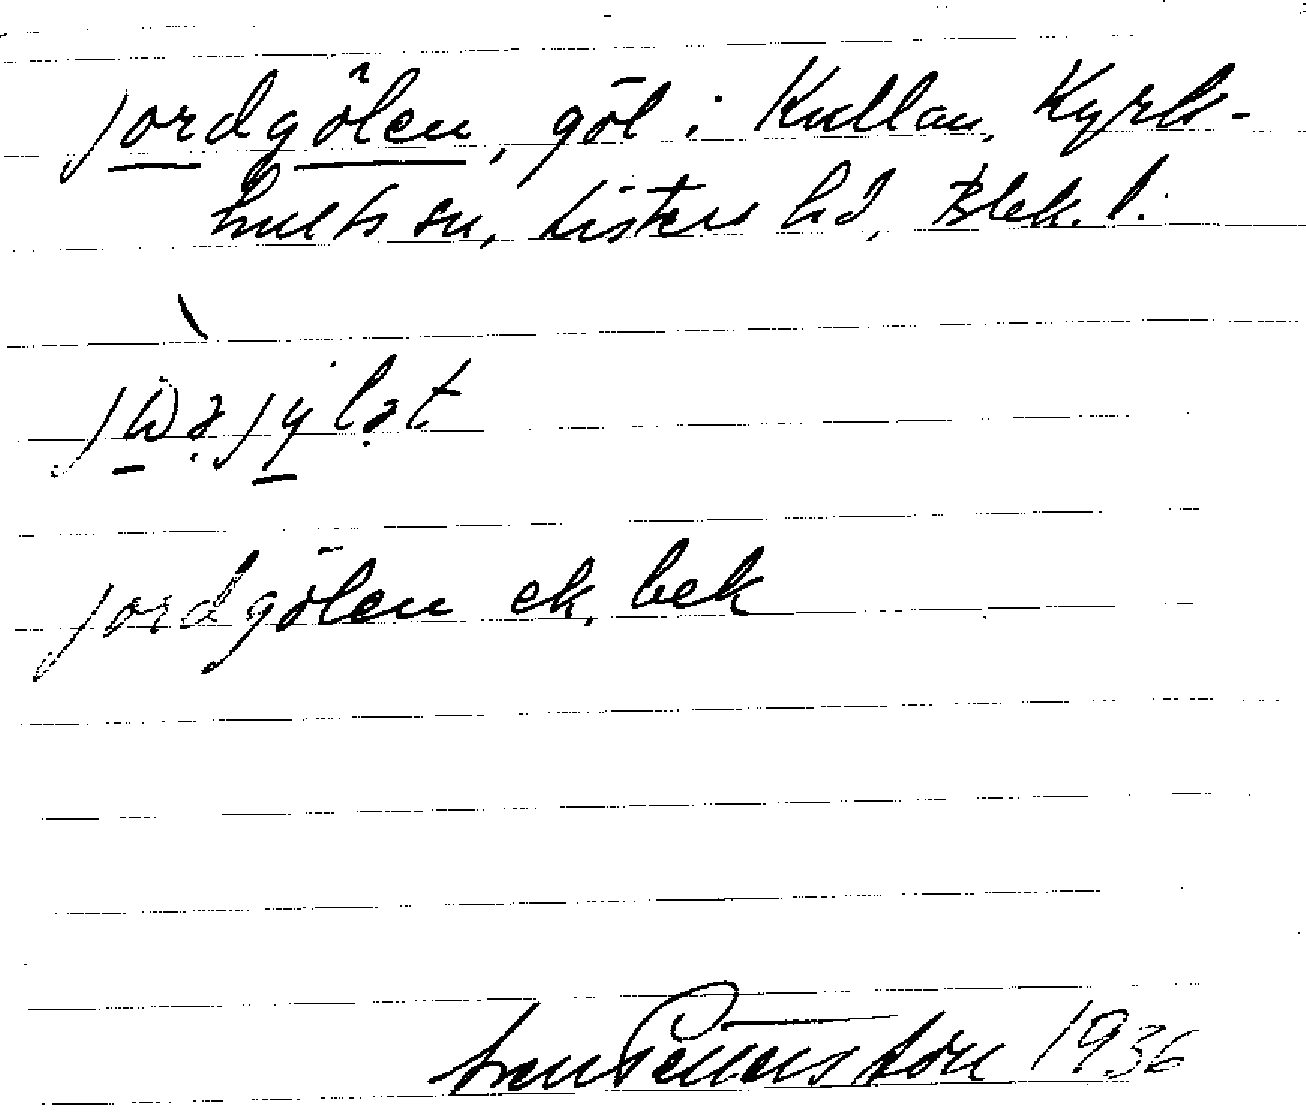 jordgölen, göl i Kullan, Kyrks-
hults sn, Listers hd, Blek. l.
jordgölen ek. bek
Sven Petersson 1936